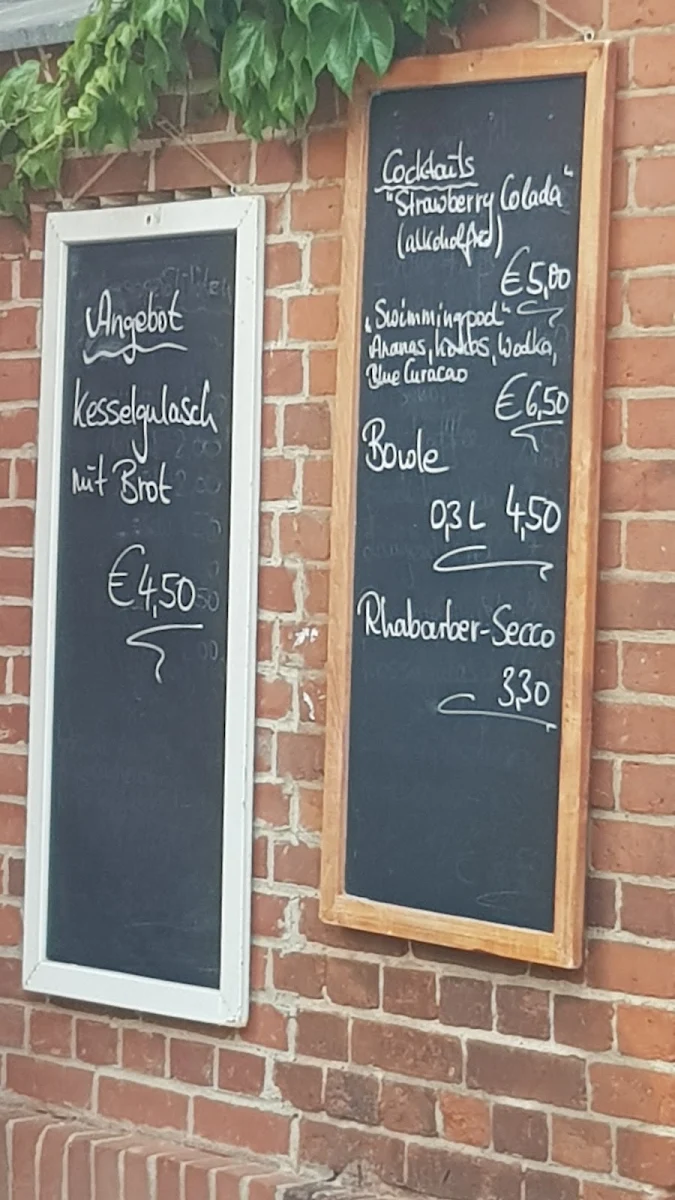 Angebot
Kesselgulasch
mit Brot
€4,50
Cocktails
"Strawberry Colada"
(alkoholfrei)
€5,00
„Swimmingpool"
Ananas, Kokos, Wodka,
Blue Curacao
€6,50
Bowle
0,3 L 4,50
Rhabarber-Secco
3,30